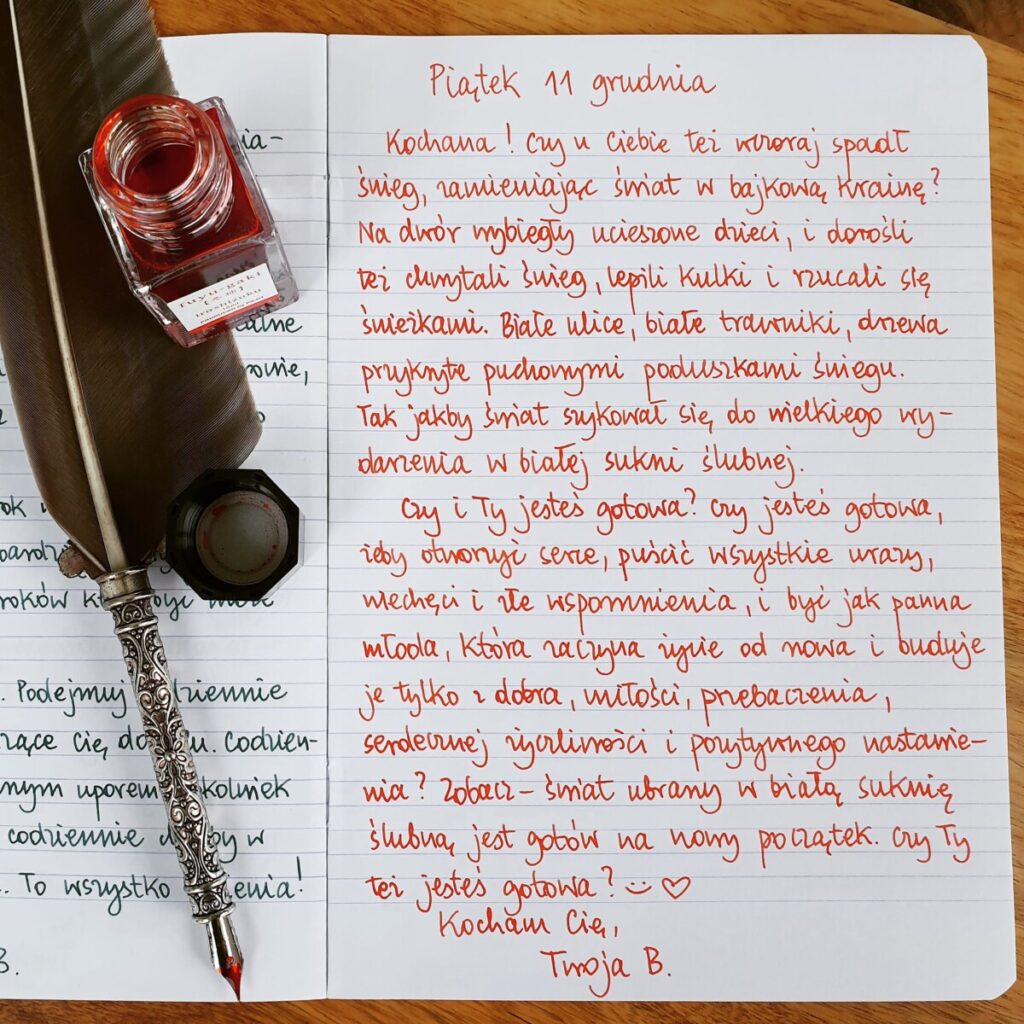 ia-
ealne
ownie,
rok
bardzi
roków
być może
. Podejmuj dziennie
rzące Cię do u. Codzien-
nym uporem kolwiek
codziennie by w
. To wszystko enia!
B.
Fuyu-gaki
[冬柿]
iroshizuku
Piątek 11 grudnia
Kochana! Czy u Ciebie też wczoraj spadł
śnieg, zamieniając świat w bajkową krainę?
Na dwór wybiegły ucieszone dzieci, i dorośli
też chwytali śnieg, lepili kulki i rzucali się
śnieżkami. Białe ulice, białe trawniki, drzewa
przykryte puchowymi poduszkami śniegu.
Tak jakby świat szykował się do wielkiego wy-
darzenia w białej sukni ślubnej.
Czy i Ty jesteś gotowa? Czy jesteś gotowa,
żeby otworzyć serce, puścić wszystkie urazy,
niechęci i złe wspomnienia, i być jak panna
młoda, która zaczyna życie od nowa i buduje
je tylko z dobra, miłości, przebaczenia,
serdecznej życzliwości i pozytywnego nastawie-
nia? Zobacz – świat ubrany w białą suknię
ślubną jest gotów na nowy początek. Czy Ty
też jesteś gotowa? :) ♡
Kocham Cię,
Twoja B.